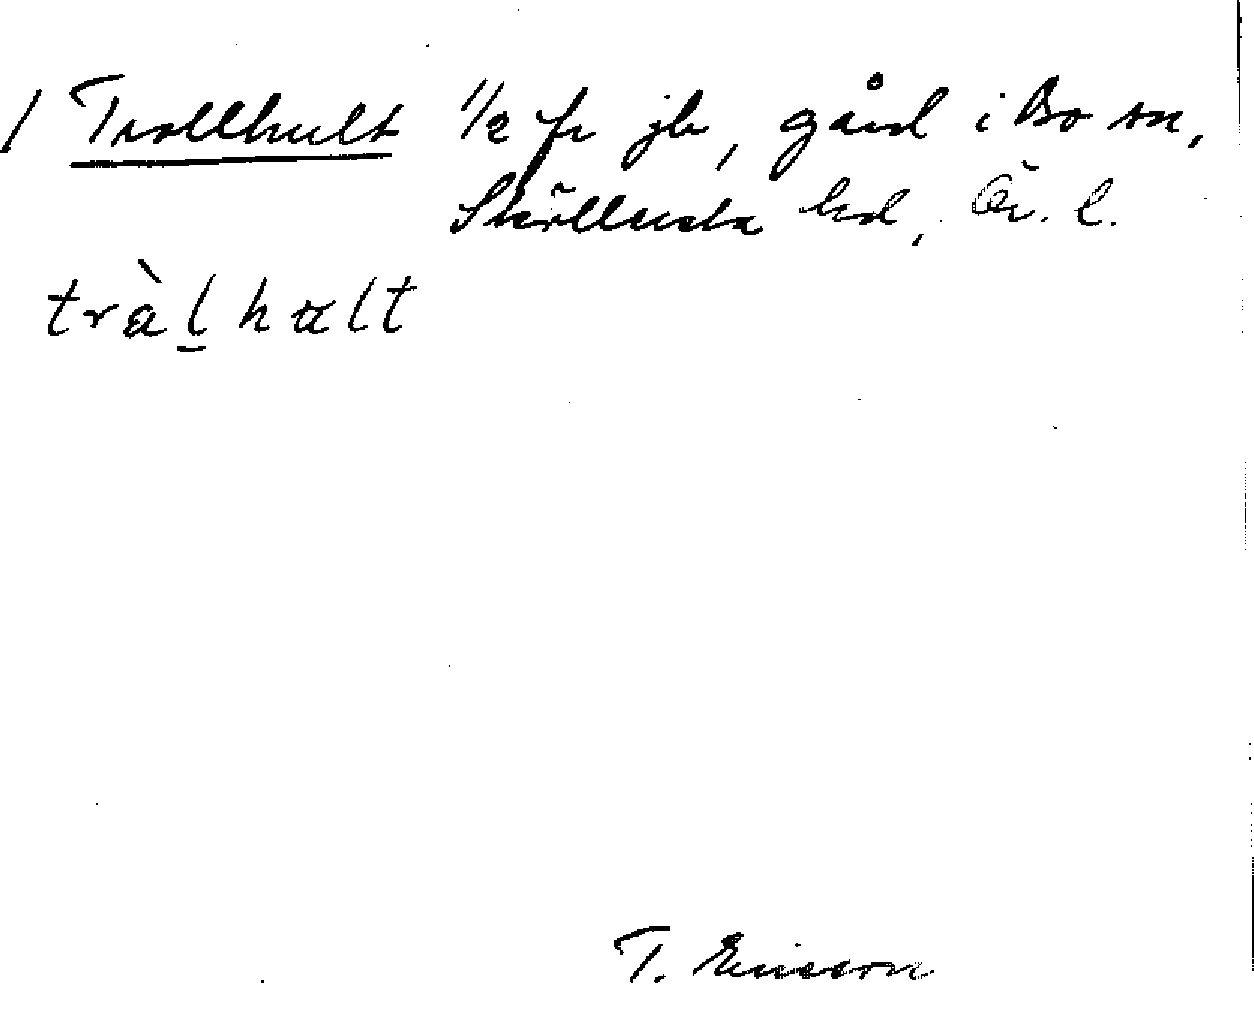 / Trollhult 1/2 fr jb, gård i Bo sn,
Sköllersta hd, Ör. l.
tràl̠hult
T. Ericson